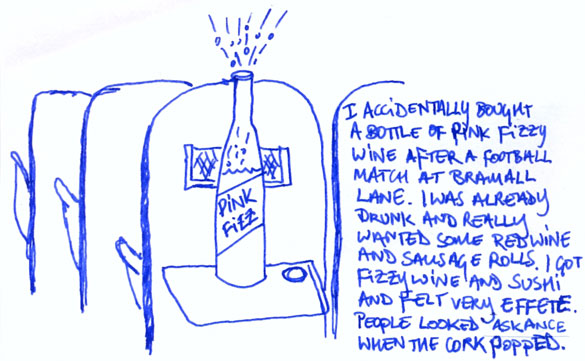 PINK
FIZZ
I ACCIDENTALLY BOUGHT
A BOTTLE OF PINK FIZZY
WINE AFTER A FOOTBALL
MATCH AT BRAMALL
LANE. I WAS ALREADY
DRUNK AND REALLY
WANTED SOME RED WINE
AND SAUSAGE ROLLS. I GOT
FIZZY WINE AND SUSHI
AND FELT VERY EFFETE.
PEOPLE LOOKED ASKANCE
WHEN THE CORK POPPED.